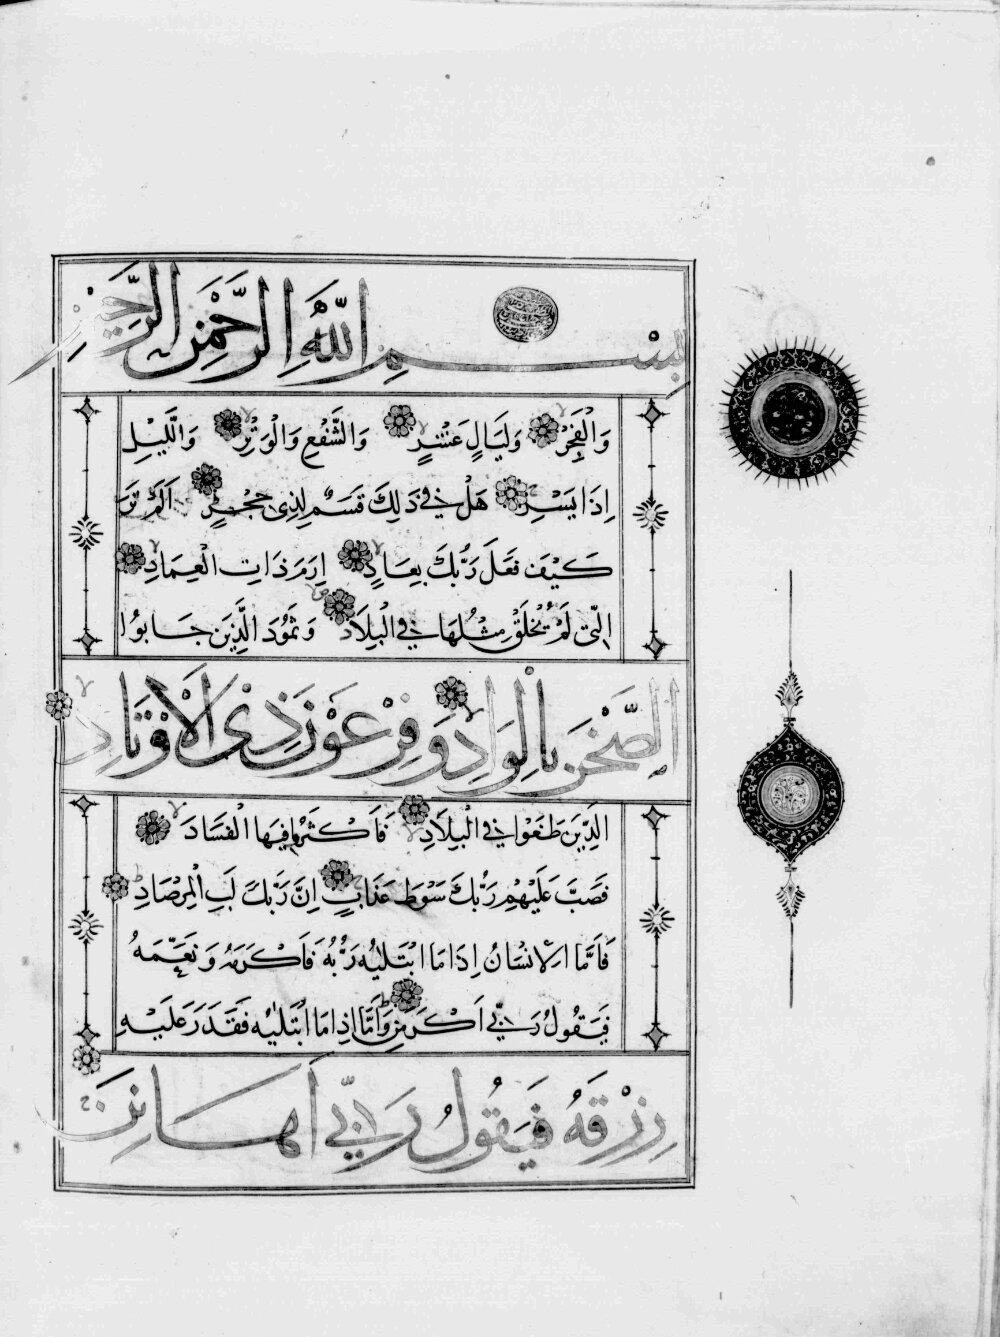 بِسْمِ اللَّهِ الرَّحْمَٰنِ الرَّحِيمِ
وَالْفَجْرِ وَلَيَالٍ عَشْرٍ وَالشَّفْعِ وَالْوَتْرِ وَاللَّيْلِ
إِذَا يَسْرِ هَلْ فِي ذَلِكَ قَسَمٌ لِذِي حِجْرٍ أَلَمْ تَرَ
كَيْفَ فَعَلَ رَبُّكَ بِعَادٍ إِرَمَ ذَاتِ الْعِمَادِ
الَّتِي لَمْ يُخْلَقْ مِثْلُهَا فِي الْبِلَادِ وَثَمُودَ الَّذِينَ جَابُوا
الصَّخْرَ بِالْوَادِ وَفِرْعَوْنَ ذِي الْأَوْتَادِ
الَّذِينَ طَغَوْا فِي الْبِلَادِ فَأَكْثَرُوا فِيهَا الْفَسَادَ
فَصَبَّ عَلَيْهِمْ رَبُّكَ سَوْطَ عَذَابٍ إِنَّ رَبَّكَ لَبِالْمِرْصَادِ
فَأَمَّا الْإِنْسَانُ إِذَا مَا ابْتَلَيٰهُ رَبُّهُ فَأَكْرَمَهُ وَنَعَّمَهُ
فَيَقُولُ رَبِّي أَكْرَمَنِ وَأَمَّا إِذَا مَا ابْتَلَيٰهُ فَقَدَرَ عَلَيْهِ
رِزْقَهُ فَيَقُولُ رَبِّي أَهَانَنِ